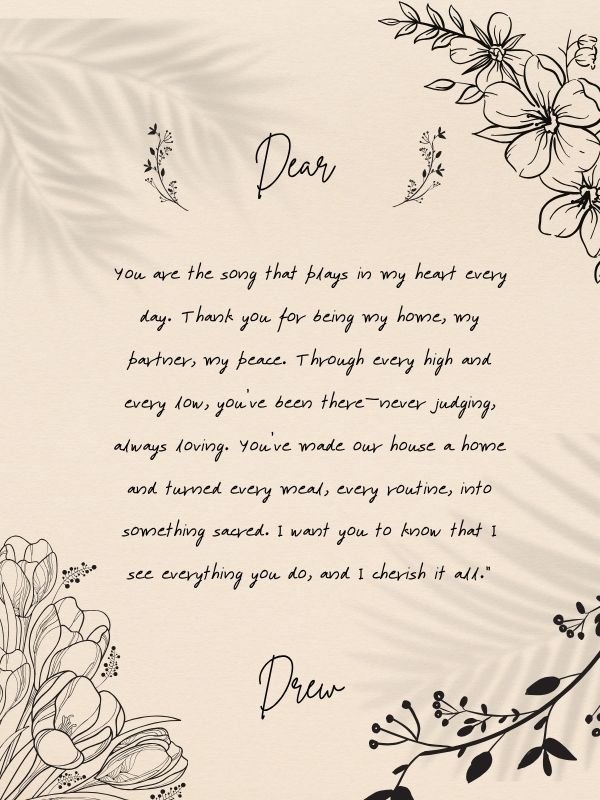 Dear
You are the song that plays in my heart every
day. Thank you for being my home, my
partner, my peace. Through every high and
every low, you've been there—never judging,
always loving. You've made our house a home
and turned every meal, every routine, into
something sacred. I want you to know that I
see everything you do, and I cherish it all."
Drew